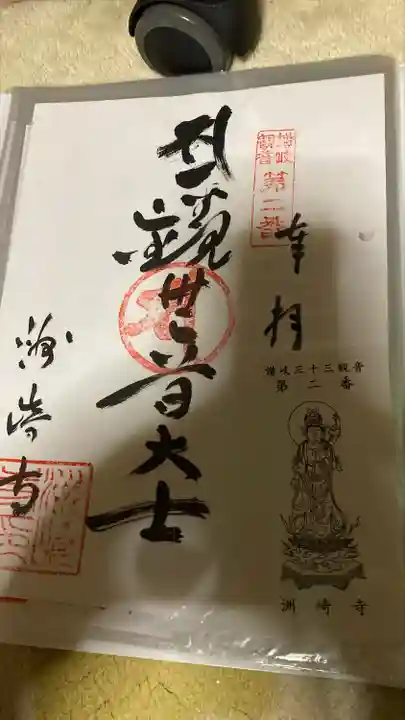 讃岐
観音
第二番
奉拝
讃岐三十三観音
第二番
洲崎寺
聖観世音大士
洲崎寺